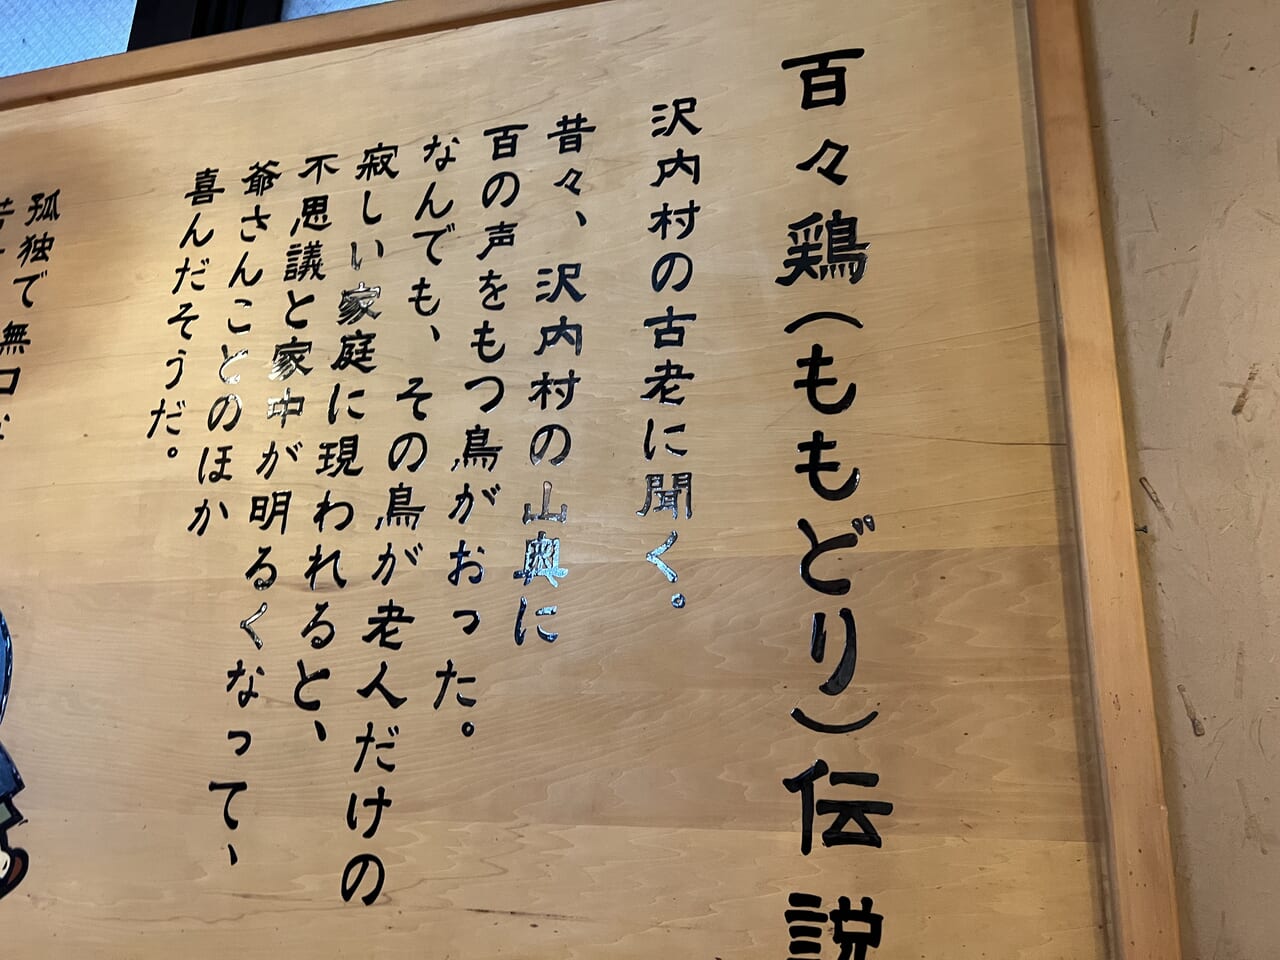 百々鶏(ももどり)伝説
沢内村の古老に聞く。
昔々、沢内村の山奥に
百の声をもつ鳥がおった。
なんでも、その鳥が老人だけの
寂しい家庭に現われると、
不思議と家中が明るくなって、
爺さんことのほか
喜んだそうだ。
孤独で無口な